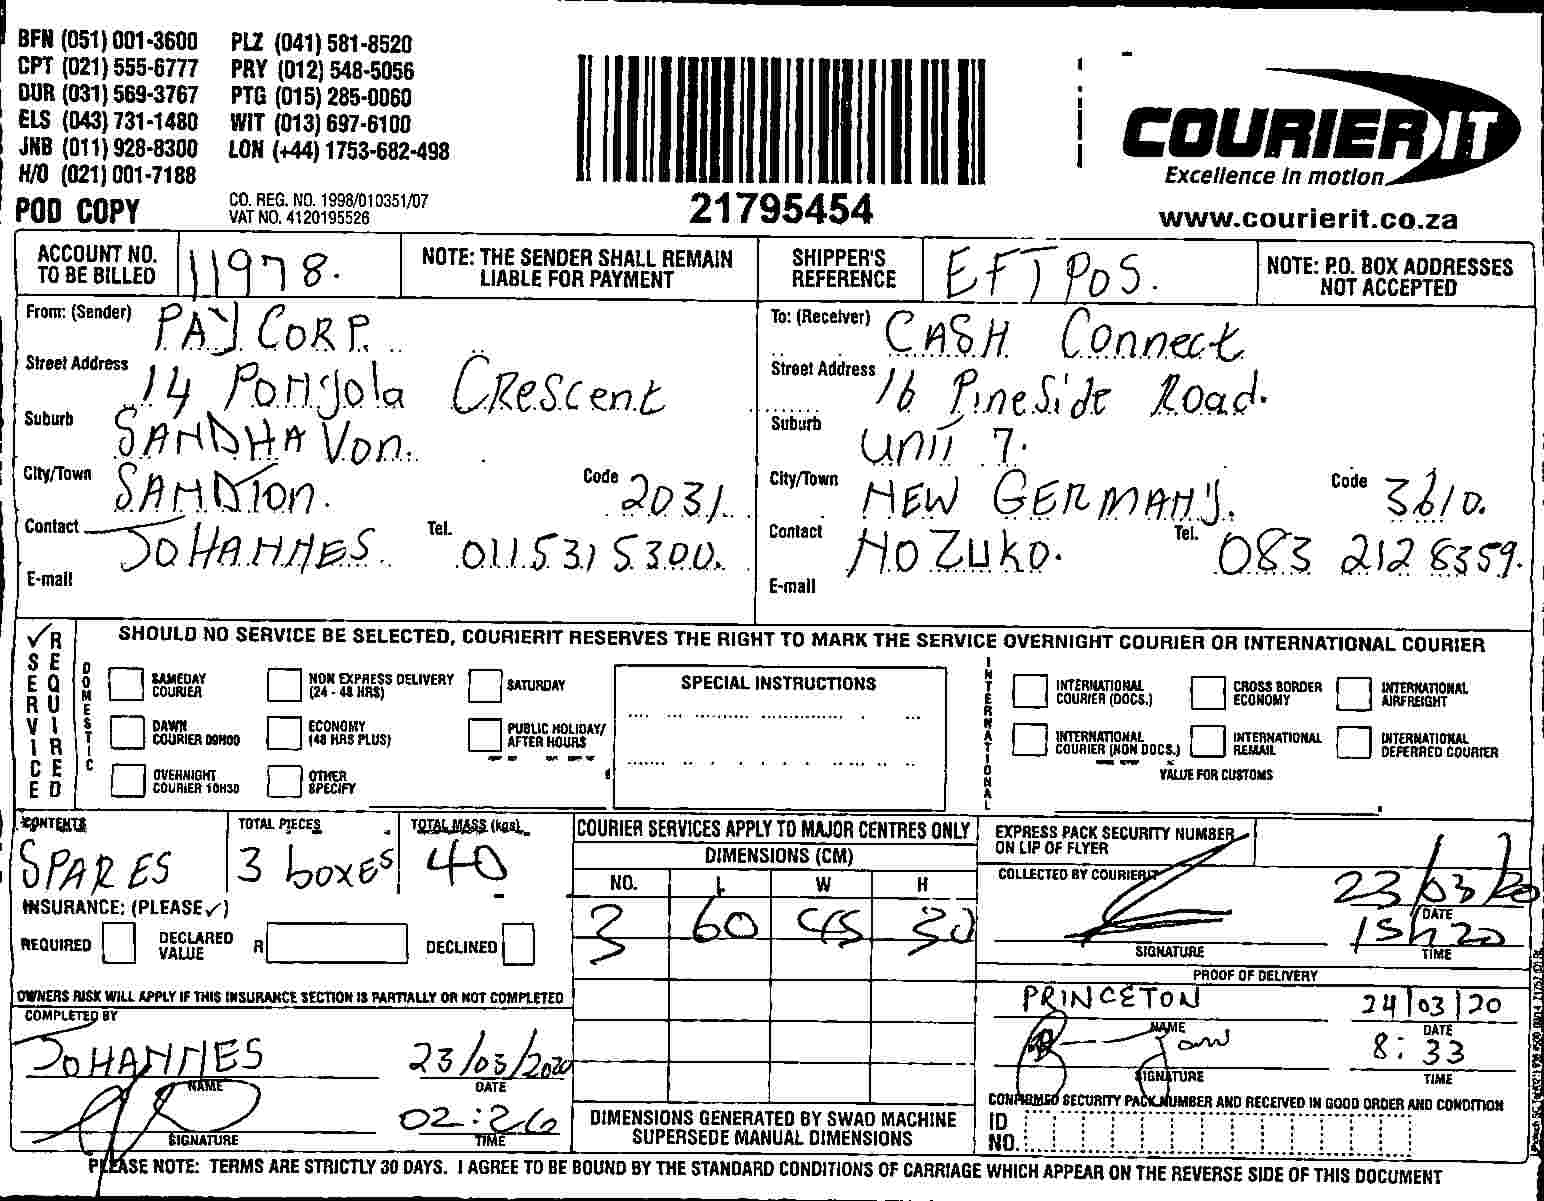 BFN (051) 001-3600 PLZ (041) 581-8520
CPT (021) 555-6777 PRY (012) 548-5056
DUR (031) 569-3767 PTG (015) 285-0060
ELS (043) 731-1480 WIT (013) 697-6100
JNB (011) 928-8300 LON (+44) 1753-682-498
H/O (021) 001-7188
POD COPY
CO. REG. NO. 1998/010351/07
VAT NO. 4120195526
21795454
COURIER IT
Excellence in motion
www.courierit.co.za
ACCOUNT NO. TO BE BILLED 11978.
NOTE: THE SENDER SHALL REMAIN LIABLE FOR PAYMENT
SHIPPER'S REFERENCE EFTPOS.
NOTE: P.O. BOX ADDRESSES NOT ACCEPTED
From: (Sender) PAYCORP.
Street Address 14 Pongola Crescent
Suburb SANDHAVon.
City/Town SANDTon. Code 2031.
Contact JOHANNES. Tel. 0115315300.
E-mail
To: (Receiver) CASH Connect
Street Address 16 PineSide Road.
Suburb unit 7.
City/Town NEW GERMANY. Code 3610.
Contact NOZUKO. Tel. 083 212 8359.
E-mail
✓ SERVICE REQUIRED
SHOULD NO SERVICE BE SELECTED, COURIERIT RESERVES THE RIGHT TO MARK THE SERVICE OVERNIGHT COURIER OR INTERNATIONAL COURIER
DOMESTIC
SAMEDAY COURIER
NON EXPRESS DELIVERY (24 - 48 HRS)
SATURDAY
DAWN COURIER 09H00
ECONOMY (48 HRS PLUS)
PUBLIC HOLIDAY/ AFTER HOURS
OVERNIGHT COURIER 10H30
OTHER SPECIFY
SPECIAL INSTRUCTIONS
INTERNATIONAL
INTERNATIONAL COURIER (DOCS.)
CROSS BORDER ECONOMY
INTERNATIONAL AIRFREIGHT
INTERNATIONAL COURIER (NON DOCS.)
INTERNATIONAL REMAIL
INTERNATIONAL DEFERRED COURIER
VALUE FOR CUSTOMS
CONTENTS SPARES
TOTAL PIECES 3 boxes
TOTAL MASS (kgs) 40
INSURANCE: (PLEASE ✓)
REQUIRED DECLARED VALUE R DECLINED
OWNERS RISK WILL APPLY IF THIS INSURANCE SECTION IS PARTIALLY OR NOT COMPLETED
COMPLETED BY
JOHANNES 23/03/2020
NAME DATE
02:26
SIGNATURE TIME
COURIER SERVICES APPLY TO MAJOR CENTRES ONLY
DIMENSIONS (CM)
NO. L W H
3 60 45 30
DIMENSIONS GENERATED BY SWAD MACHINE SUPERSEDE MANUAL DIMENSIONS
EXPRESS PACK SECURITY NUMBER ON LIP OF FLYER
COLLECTED BY COURIERIT
23/03/20
DATE
15h20
SIGNATURE TIME
PROOF OF DELIVERY
PRINCETON 24/03/20
NAME DATE
8:33
SIGNATURE TIME
CONFIRMED SECURITY PACK NUMBER AND RECEIVED IN GOOD ORDER AND CONDITION
ID NO.
PLEASE NOTE: TERMS ARE STRICTLY 30 DAYS. I AGREE TO BE BOUND BY THE STANDARD CONDITIONS OF CARRIAGE WHICH APPEAR ON THE REVERSE SIDE OF THIS DOCUMENT